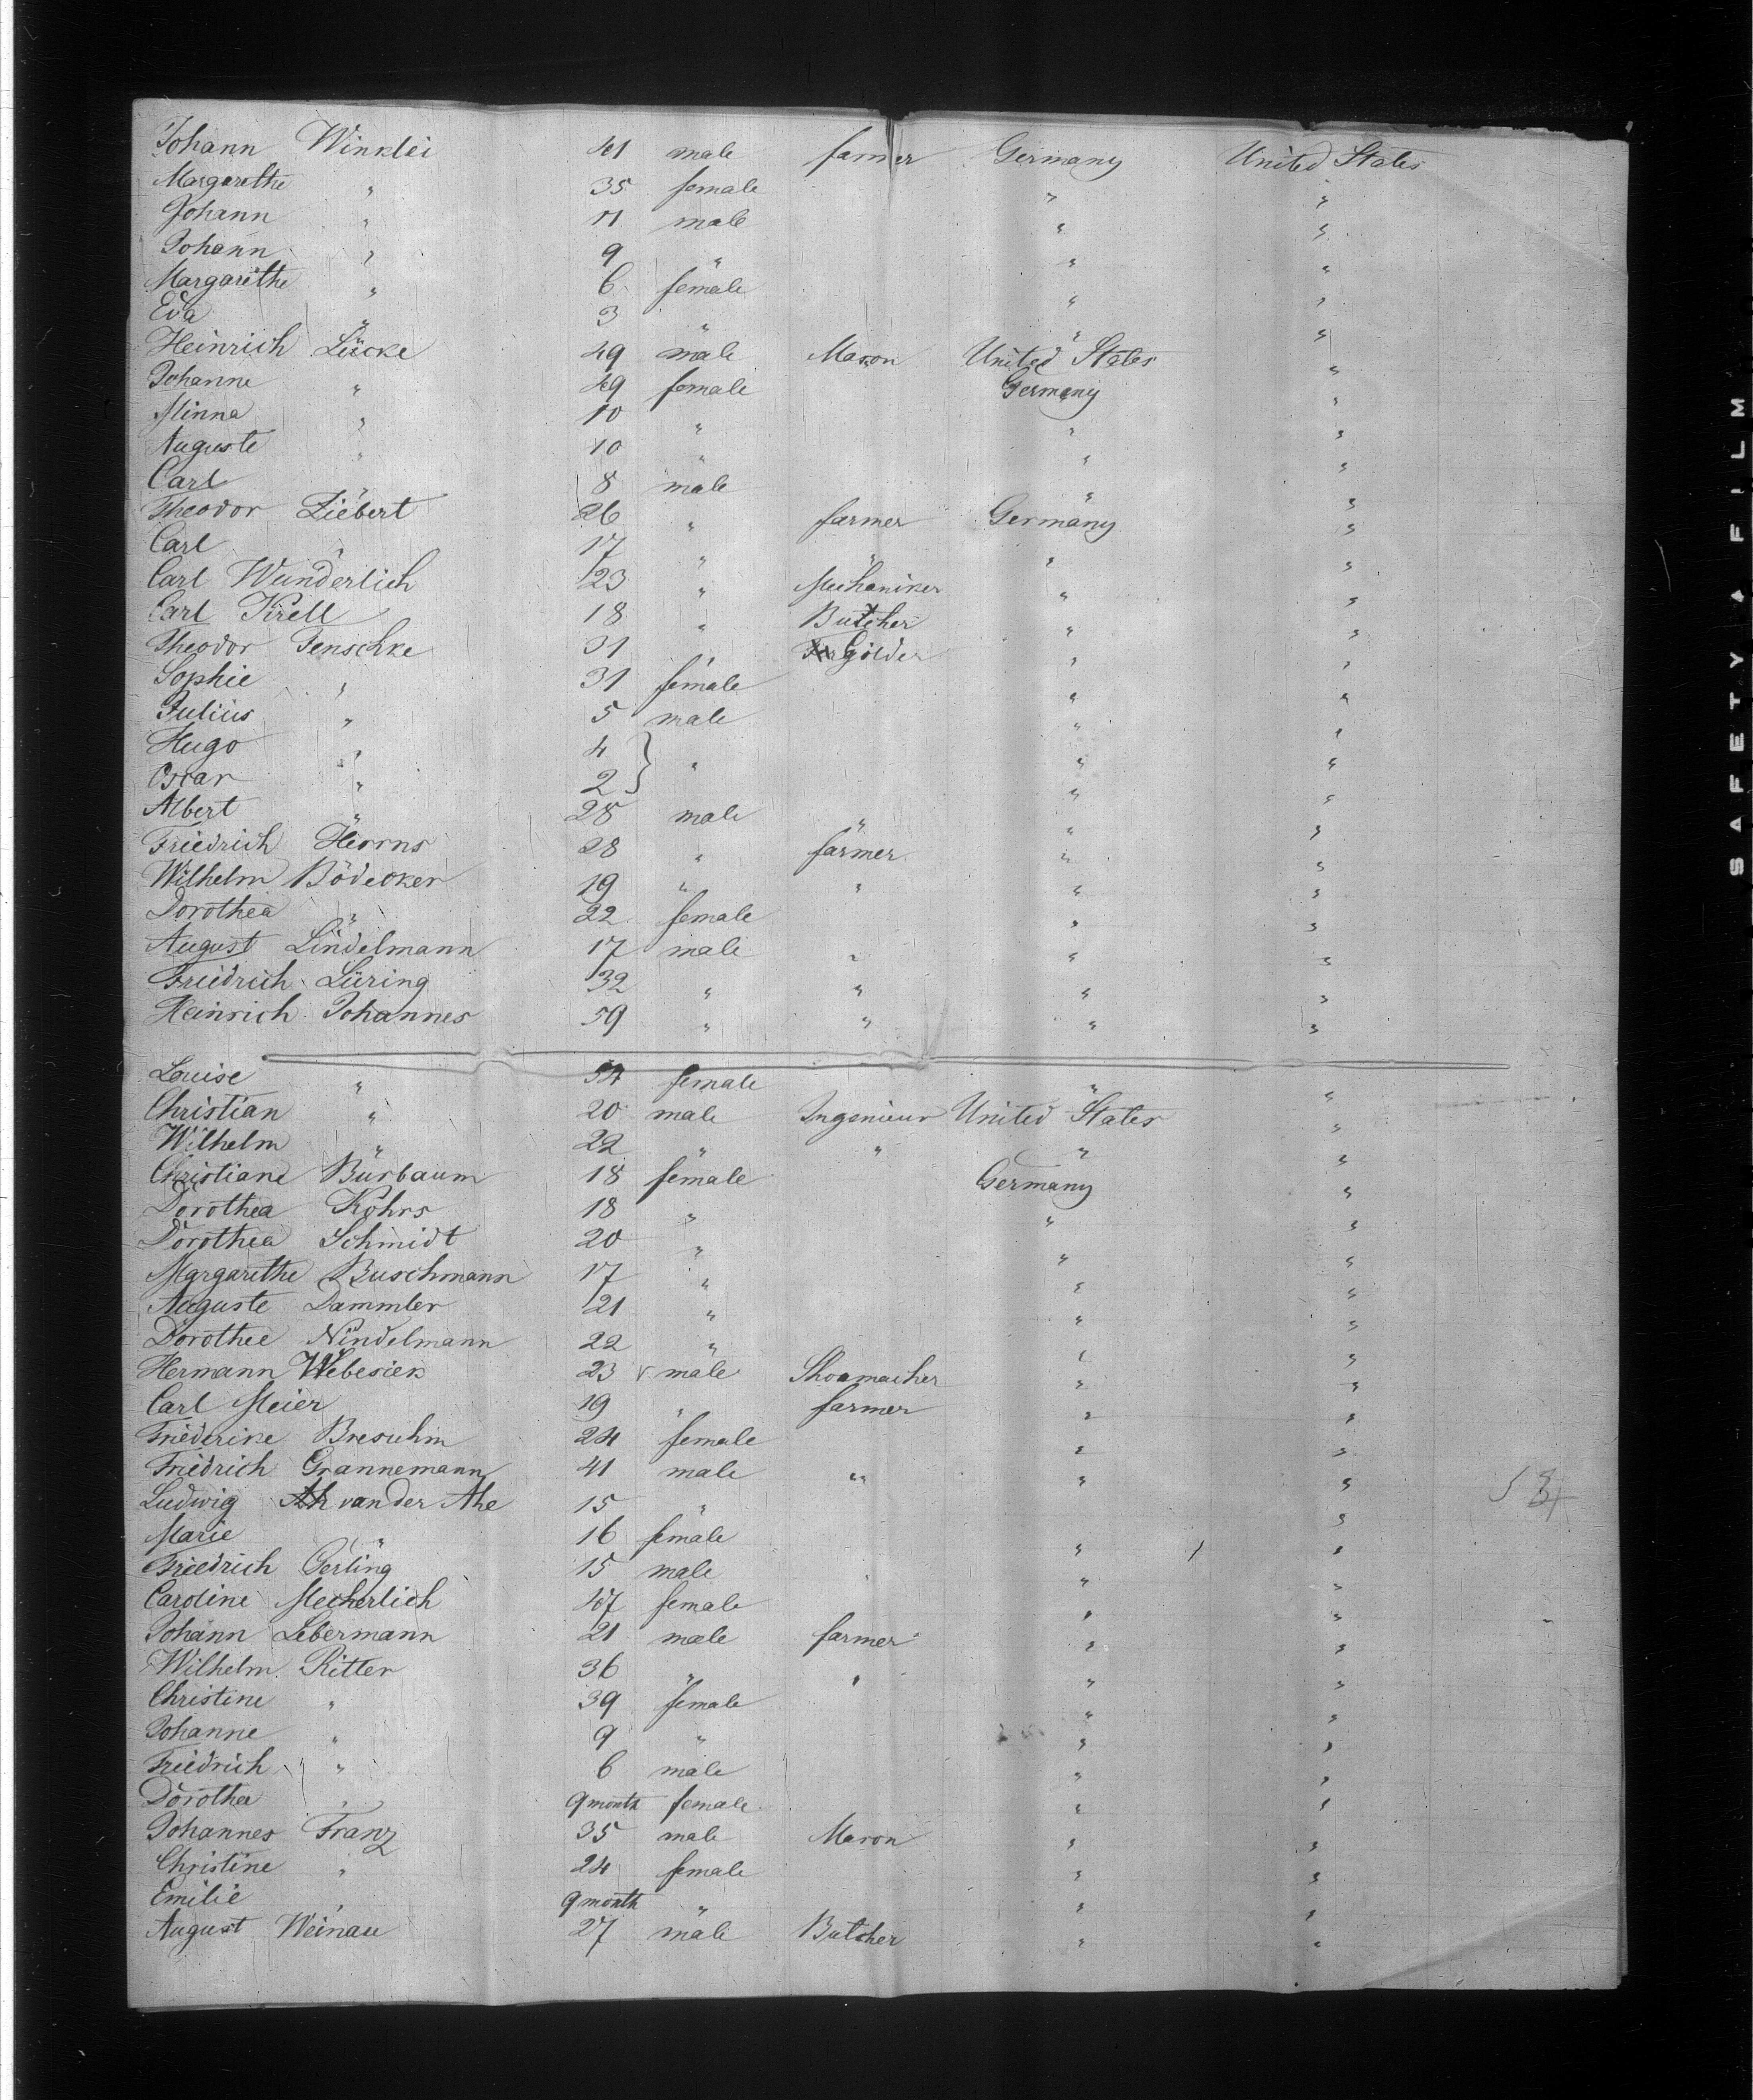 Johann Winklei 41 male farmer Germany United States
Margarethe " 35 female " "
Johann " 11 male " "
Johann " 9 " " "
Margarethe " 6 female " "
Eva " 3 " " "
Heinrich Lücke 49 male Mason United States "
Johanne " 49 female Germany "
Minna " 10 " " "
Auguste " 10 " " "
Carl " 8 male " "
Theodor Liebert 26 " farmer Germany "
Carl " 17 " " " "
Carl Wunderlich 23 " Mechaniker " "
Carl Krell 18 " Butcher " "
Theodor Jenschke 31 " Gölder " "
Sophie " 31 female " "
Julius " 5 male " "
Hugo " 4 } " " "
Oscar " 2 } " "
Albert " 28 male " " "
Friedrich Horns 28 " farmer " "
Wilhelm Bödecker 19 " " " "
Dorothea " 22 female " "
August Lindelmann 17 male " " "
Friedrich Lüring 32 " " " "
Heinrich Johannes 59 " " " "
Louise " 54 female " "
Christian " 20 male Ingenieur United States "
Wilhelm " 22 " " " "
Christiane Bürbaum 18 female Germany "
Dorothea Kohrs 18 " " "
Dorothea Schmidt 20 " " "
Margarethe Buschmann 17 " " "
Auguste Dammler 21 " " "
Dorothee Nindelmann 22 " " "
Hermann Webesiek 23 male Shoamacher " "
Carl Meier 19 " farmer " "
Friederike Bresuhm 24 female " "
Friedrich Grannemann 41 male " " "
Ludwig van der Ahe 15 " "
Marie " 16 female " "
Friedrich Gerling 15 male " "
Caroline Mecherlich 47 female " "
Johann Lebermann 21 male farmer " "
Wilhelm Ritter 36 " " " "
Christine " 39 female " "
Johanne " 9 " " "
Friedrich " 6 male " "
Dorothea " 9 month female " "
Johannes Franz 35 male Mason " "
Christine " 24 female " "
Emilie " 9 month " " "
August Weinau 27 male Butcher " "
SAFETY A FILM